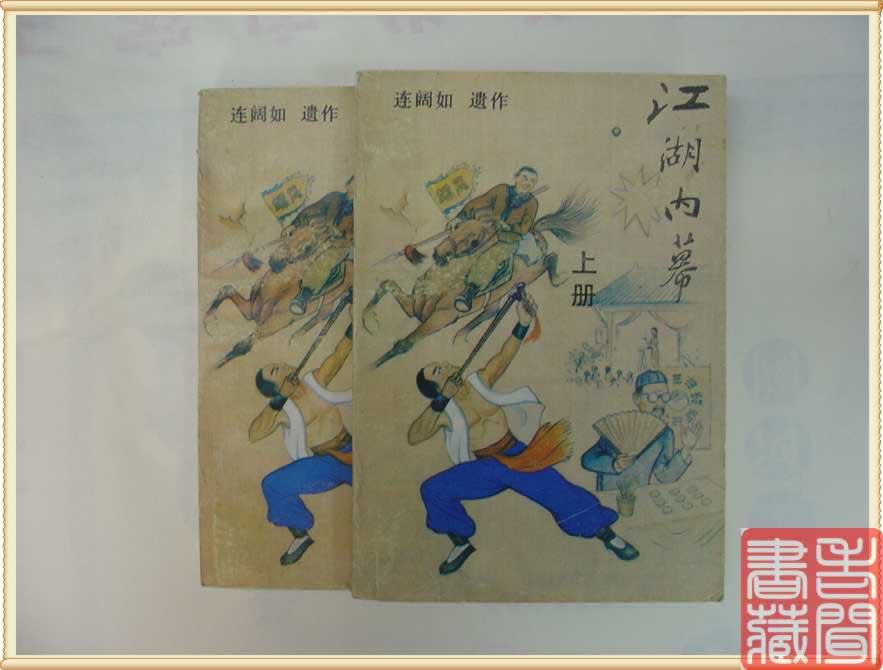 连阔如 遗作
连阔如 遗作
江湖内幕
上册